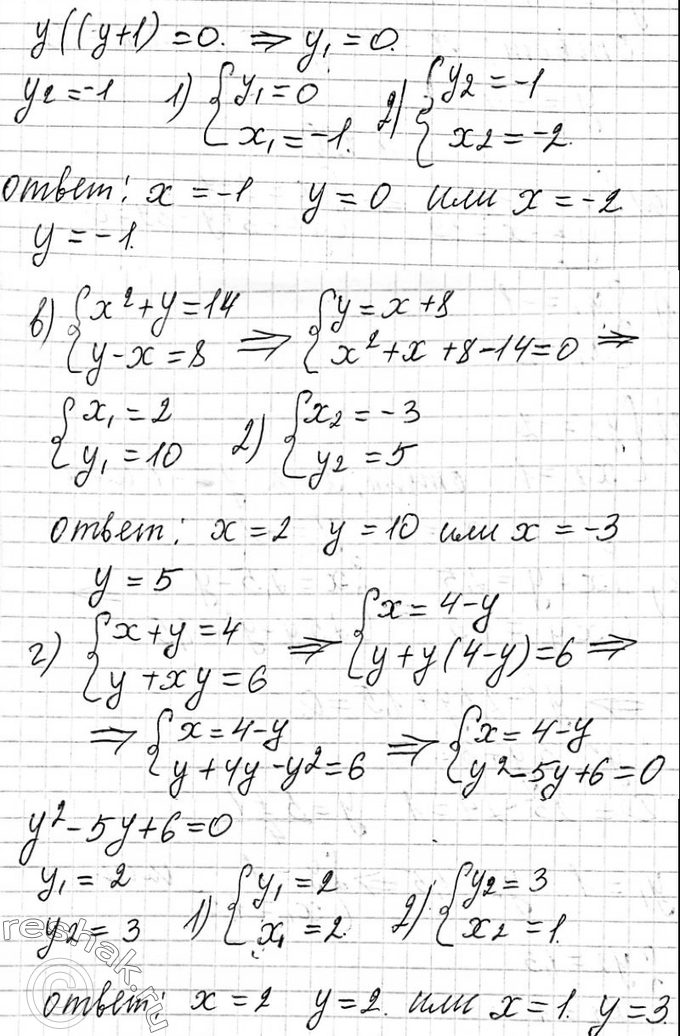 y((y+1)=0. ⇒ y₁=0.
y₂=-1 1) {y₁=0 x₁=-1. 2) {y₂=-1 x₂=-2.
ответ: x=-1 y=0 или x=-2
y=-1.
в) {x²+y=14 y-x=8 ⇒ {y=x+8 x²+x+8-14=0 ⇒
{x₁=2 y₁=10 2) {x₂=-3 y₂=5
ответ: x=2 y=10 или x=-3
y=5
г) {x+y=4 y+xy=6 ⇒ {x=4-y y+y(4-y)=6 ⇒
⇒ {x=4-y y+4y-y²=6 ⇒ {x=4-y y²-5y+6=0
y²-5y+6=0
y₁=2
y₂=3 1) {y₁=2 x₁=2. 2) {y₂=3 x₂=1.
ответ: x=2 y=2. или x=1. y=3.
reshak.ru